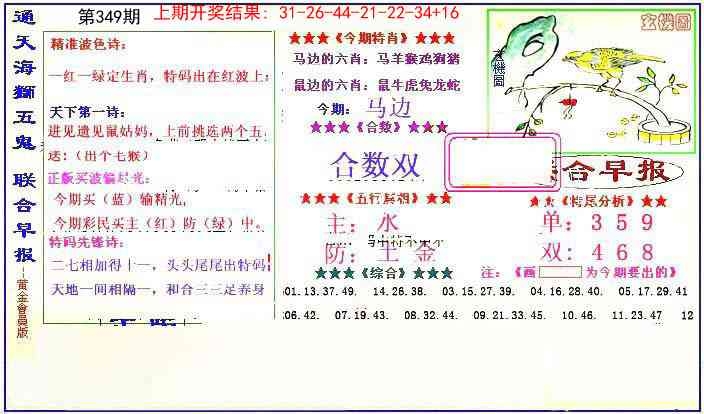 通天海狮五鬼 联合早报
--黄金會員版
第349期
上期开奖结果：31-26-44-21-22-34+16
精准波色诗：
一红一绿定生肖，特码出在红波上;
天下第一诗：
进见遗见鼠姑妈，上前挑选两个五.
送:（出个七猴）
正版买波输尽光:
今期买（蓝）输精光,
今期彩民买主（红）防（绿）中。
特码先锋诗：
二七相加得十一，头头尾尾出特码
天地一间相隔一，和合三三足养身
★★★《今期特肖》★★★
马边的六肖：马羊猴鸡狗猪
鼠边的六肖：鼠牛虎兔龙蛇
今期：马边
★★★《合数》★★★
合数双
★★★《五行属相》★★
主：水
防：土 金
★★★《综合》★★★
玄機圖
玄機圖
合早报
★★《特尾分析》★★
单：3 5 9
双：4 6 8
注：《画 为今期要出的》
01.13.37.49. 14.26.38. 03.15.27.39. 04.16.28.40. 05.17.29.41
06.42. 07.19.43. 08.32.44. 09.21.33.45. 10.46. 11.23.47 12